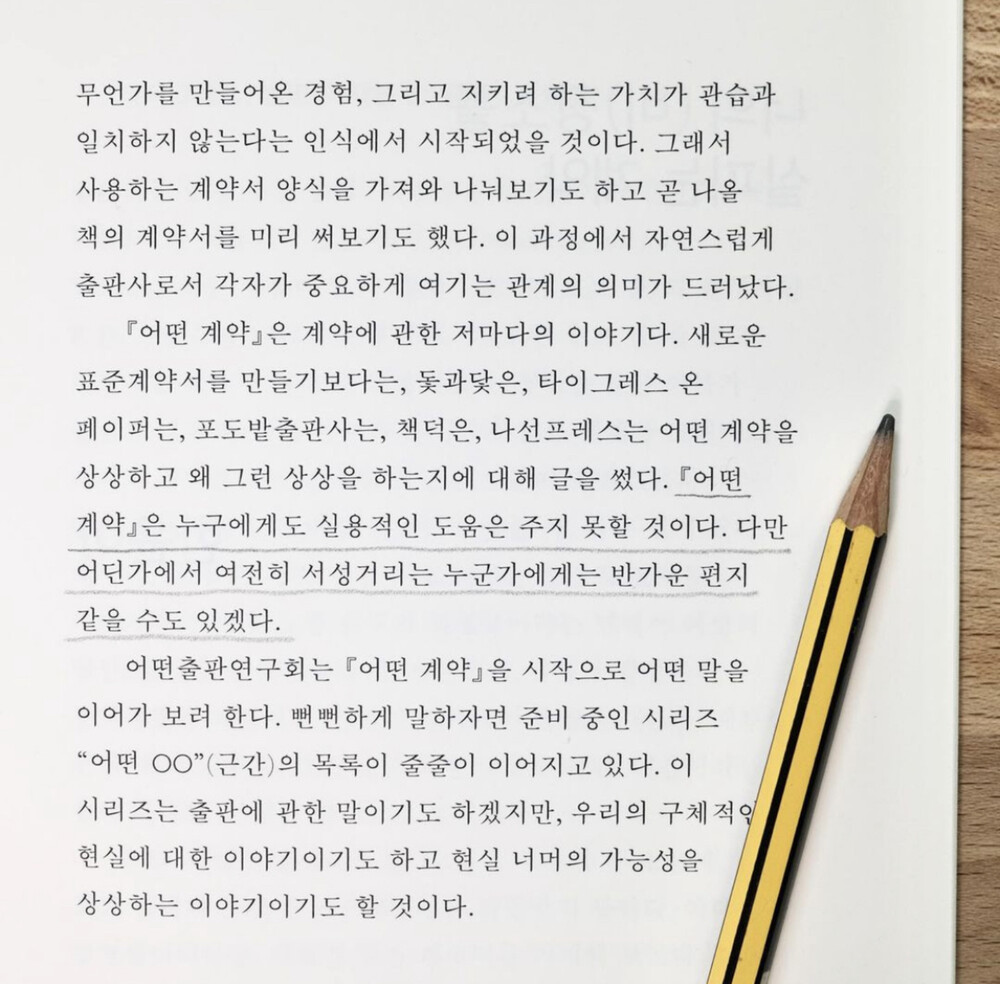 무언가를 만들어온 경험, 그리고 지키려 하는 가치가 관습과
일치하지 않는다는 인식에서 시작되었을 것이다. 그래서
사용하는 계약서 양식을 가져와 나눠보기도 하고 곧 나올
책의 계약서를 미리 써보기도 했다. 이 과정에서 자연스럽게
출판사로서 각자가 중요하게 여기는 관계의 의미가 드러났다.
『어떤 계약』은 계약에 관한 저마다의 이야기다. 새로운
표준계약서를 만들기보다는, 돛과닻은, 타이그레스 온
페이퍼는, 포도밭출판사는, 책덕은, 나선프레스는 어떤 계약을
상상하고 왜 그런 상상을 하는지에 대해 글을 썼다. 『어떤
계약』은 누구에게도 실용적인 도움은 주지 못할 것이다. 다만
어딘가에서 여전히 서성거리는 누군가에게는 반가운 편지
같을 수도 있겠다.
어떤출판연구회는 『어떤 계약』을 시작으로 어떤 말을
이어가 보려 한다. 뻔뻔하게 말하자면 준비 중인 시리즈
“어떤 OO”(근간)의 목록이 줄줄이 이어지고 있다. 이
시리즈는 출판에 관한 말이기도 하겠지만, 우리의 구체적인
현실에 대한 이야기이기도 하고 현실 너머의 가능성을
상상하는 이야기이기도 할 것이다.